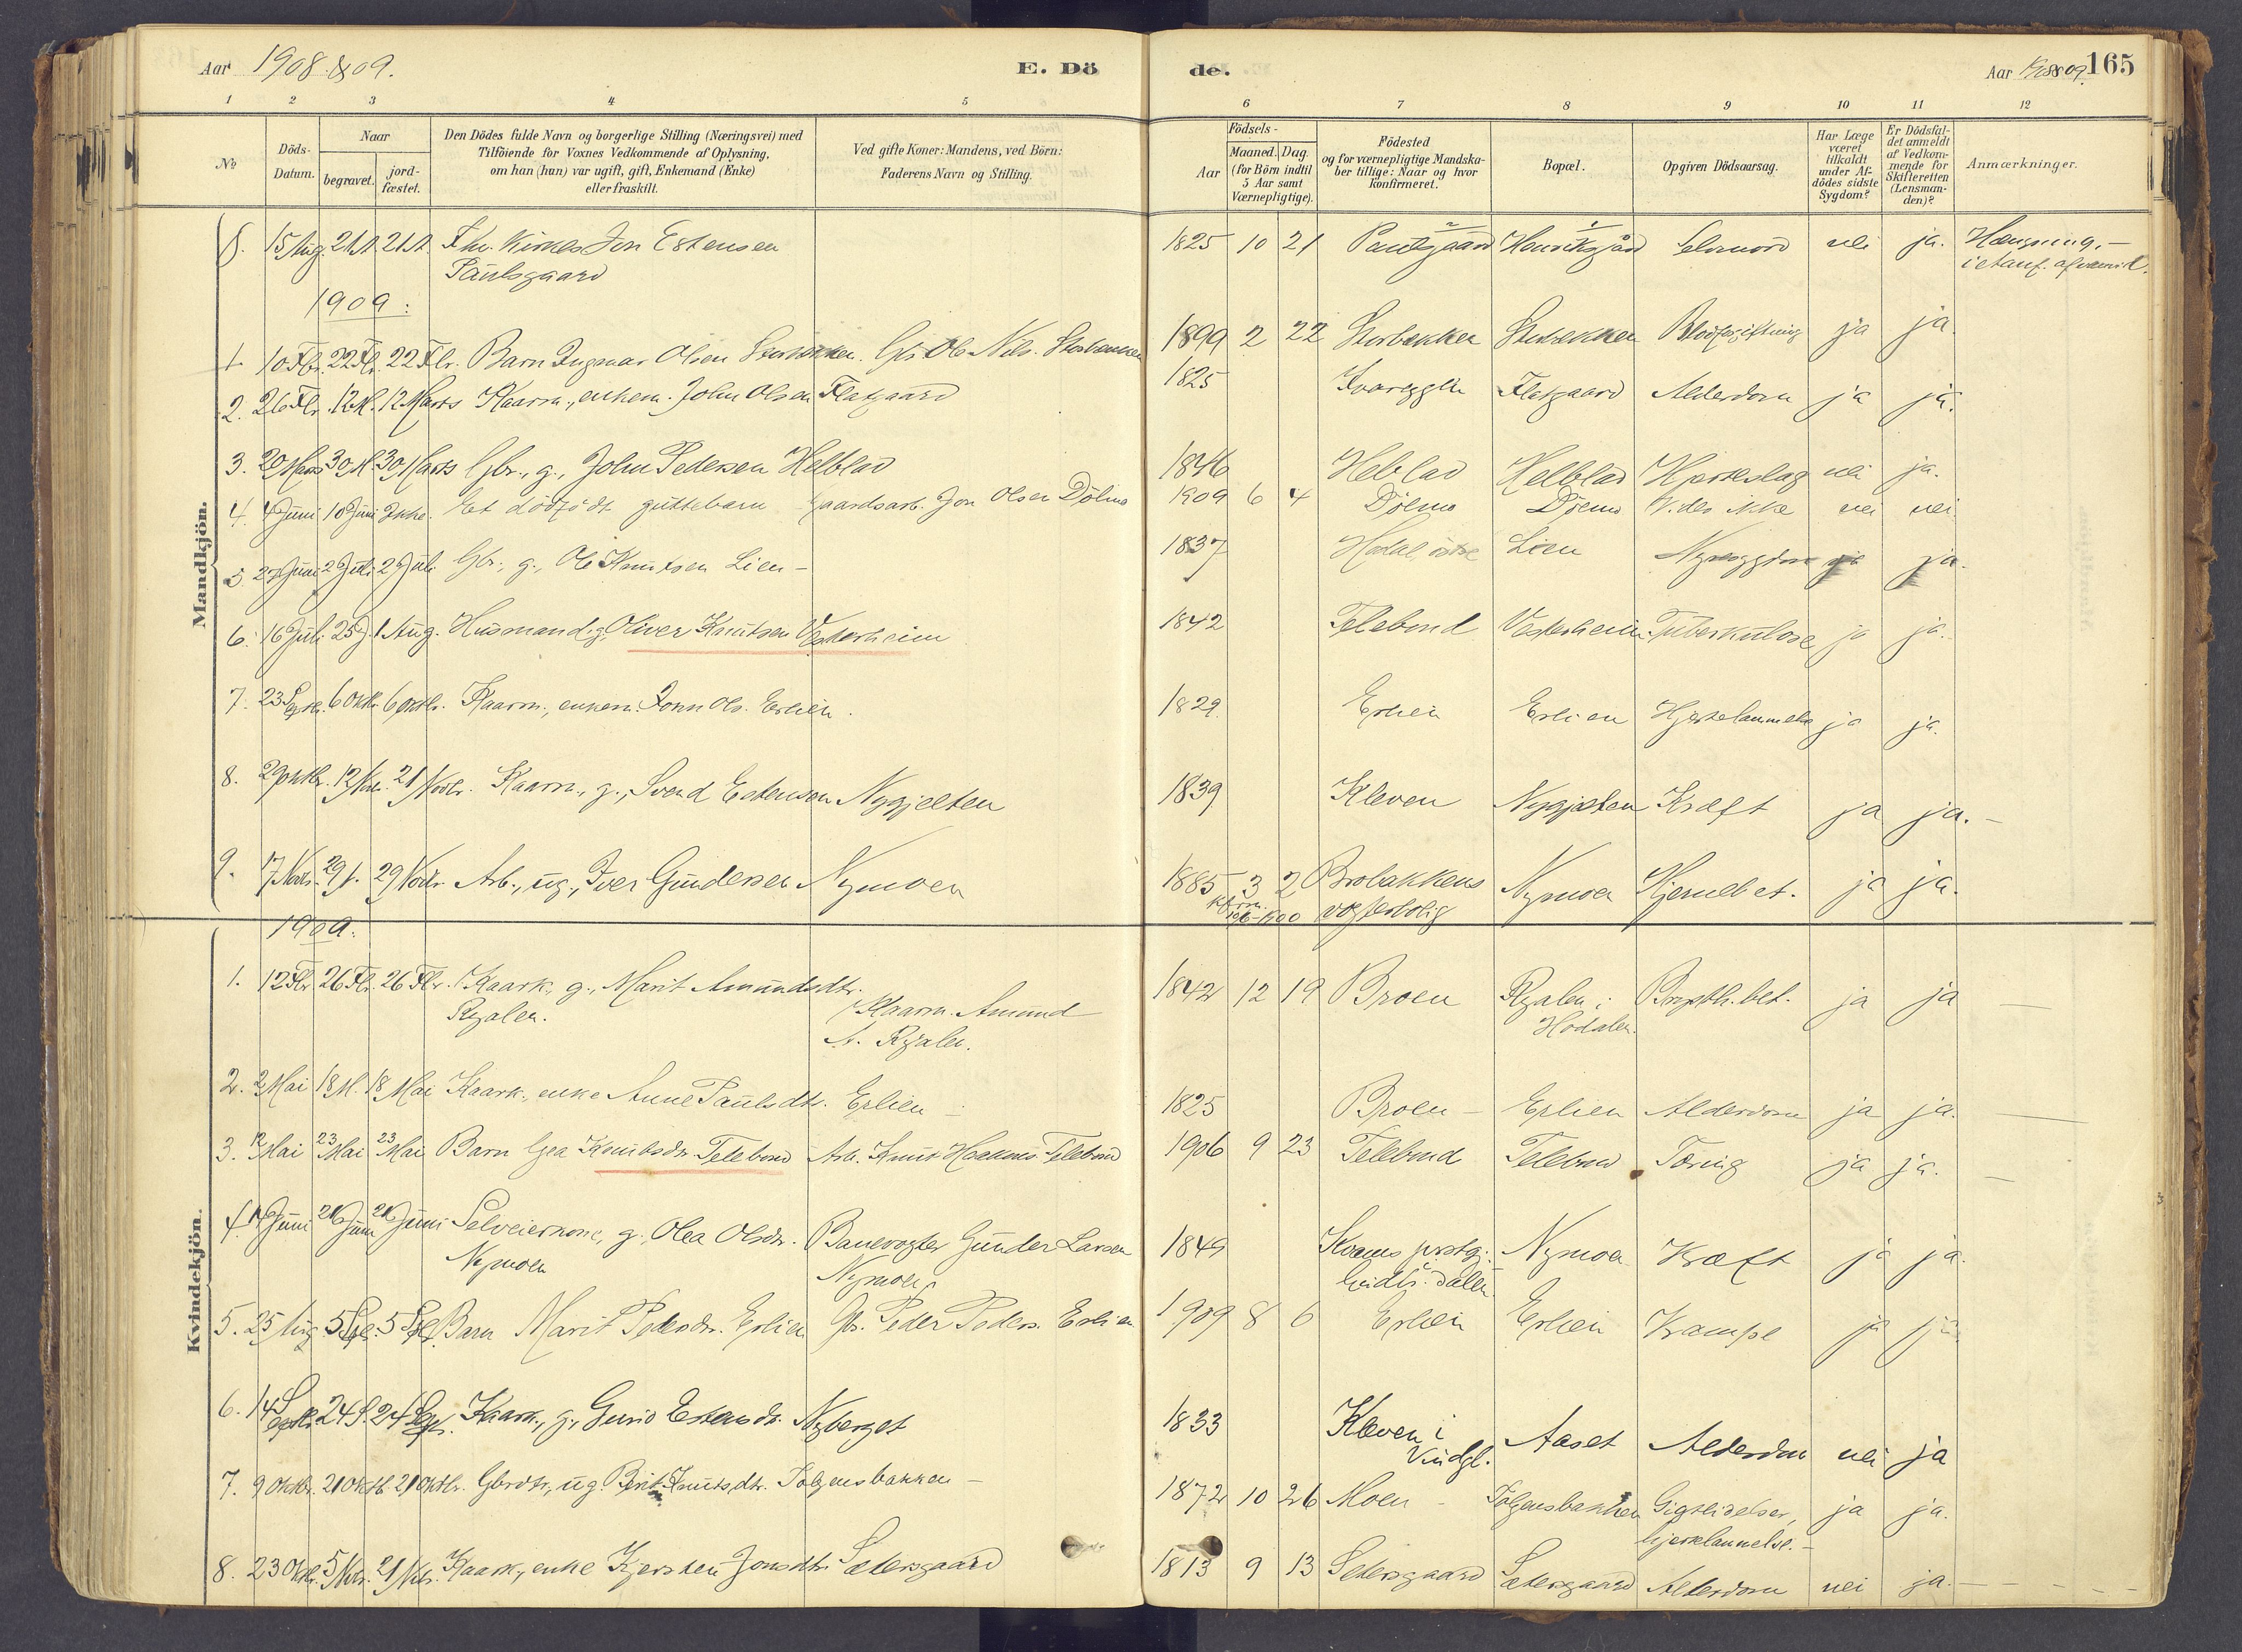 Aar 1908 & 09.
E. Dö
de.
Aar 1908 & 09. 165
1 2 3 4 5 6 7 8 9 10 11 12
No
Döds-Datum.
Naar
begravet.
jord-fæstet.
Den Dödes fulde Navn og borgerlige Stilling (Næringsvei) med
Tilföiende for Voxnes Vedkommende af Oplysning,
om han (hun) var ugift, gift, Enkemand (Enke)
eller fraskilt.
Ved gifte Koner: Mandens, ved Börn:
Faderens Navn og Stilling.
Födsels-
Aar
Maaned. Dag.
(for Börn indtil
5 Aar samt
Værnepligtige).
Födested
og for værnepligtige Mandska-
ber tillige: Naar og hvor
konfirmeret.
Bopæl.
Opgiven Dödsaarsag.
Har Læge
været
tilkaldt
under Af-
dödes sidste
Sygdom?
Er Dödsfal-
det anmeldt
af Vedkom-
mende for
Skifteretten
(Lensman-
den)?
Anmærkninger.
Mandkjön.
8. 15 Aug. 21 A. 21 A. Jon Estensen 1825 10 21 Paulsgaard Henriksgård Selvmord nei ja. Hængning.
Paulsgaard i et anf. af vanvid.
1909:
1. 10 Fbr. 22 Fbr. 22 Fbr. Barn Ingmar Olsen Storbekken. Gbr. Ole Nils. Storbekken 1899 2 22 Storbekken Storbekken Blodforgiftning ja ja.
2. 26 Fbr. 12 M. 12 Marts Kaarm., enkem. John Olsen Flatgaard 1825 Flatgaard Alderdom ja ja.
3. 20 Marts 30 M. 30 Marts Gbr., g., John Pedersen Helblad 1846 Helblad Helblad Hjerteslag nei ja.
4. 4 Juni 10 Juni Ikke. Et dödfödt guttebarn Gaardsarb. Jon Olsen Dölmo 1909 6 4 Dölmo Dölmo Vides ikke nei nei.
5. 27 Juni 2 Juli 2 Juli Gbr., g., Ole Knutsen Lien 1837 Hodal östre Lien Nyresygdom ja ja.
6. 16 Juli 25 J. 1 Aug. Husmand, g. Oliver Knutsen Vesterheim 1842 Telebond Vesterheim Tuberkulose ja ja.
7. 23 Septbr. 6 Oktbr. 6 Oktbr. Kaarm., enkem. John Ols. Erlien. 1829 Erlien Erlien Hjertelammelse ja ja.
8. 29 Oktbr. 12 Nov. 21 Novbr. Kaarm., g., Svend Estensen Nygjelten 1839 Kleven Nygjelten Kræft ja ja.
9. 17 Novbr. 29 N. 29 Novbr. Arb., ug., Iver Gundersen Nymoen 1885 3 2 Brobakkens Nymoen Hjernebet. ja ja.
vogterbolig
Kvindekjön.
1909.
1. 12 Fbr. 26 Fbr. 26 Fbr. Kaark., g., Marit Amundsdtr. 1842 12 19 Broen Ryalen i Brysth.bet. ja ja
Ryalen. Kaarm. Amund Hodalen.
A. Ryalen.
2. 2 Mai 18 M. 18 Mai Kaark., enke Anne Paulsdtr. Erlien 1825 Broen Erlien Alderdom ja ja.
3. 12 Mai 23 Mai 23 Mai Barn Gea Knutsdtr. Telebond Arb. Knut Haakens. Telebond 1906 9 23 Telebond Telebond Tæring ja ja.
4. 14 Juni 26 Juni 26 Juni Selveierkone, g., Olea Olsdtr. Banevogter Gunder Larsen 1849 Kvams prstgj. Nymoen Kræft ja ja.
Nymoen Nymoen Gudbr.dalen
5. 25 Aug. 5 Sept. 5 Sept. Barn Marit Pedersdtr. Erlien Gbr. Peder Peders. Erlien 1909 8 6 Erlien Erlien Krampe ja ja
6. 14 Septbr. 24 S. 24 Sept. Kaark., g., Gurid Estensdtr. Nyberget 1833 Kleven i Aaset Alderdom nei ja
Vindgl.
7. 9 Oktbr. 21 Oktb. 21 Oktbr. Gbrdtr., ug. Berit Knutsdtr. Tolgensbakken 1872 10 26 Moen Tolgensbakken Gigtlidelser, ja ja.
hjertelammelse.
8. 23 Oktbr. 5 Nvbr. 21 Nvbr. Kaark., enke Kjersten Jonsdtr. Sætersgaard 1813 9 13 Setersgaard Sætersgaard Alderdom nei ja.